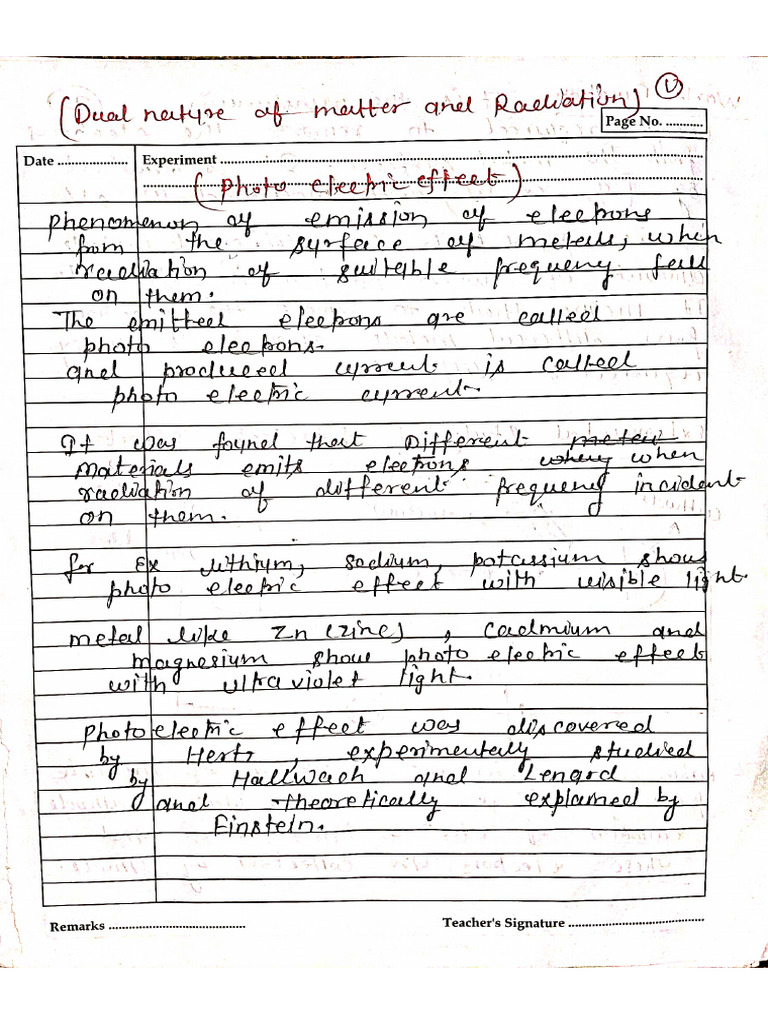 (Dual nature of matter and Radiation) ①
Page No. ...........
Date ................... Experiment ................................................................
( Photo electric effect )
phenomenon of emission of electrons
from the surface of metals, when
radiation of suitable frequency falls
on them.
The emitted electrons are called
photo electrons.
and produced current is called
photo electric current.
It was found that Different metal
materials emits electrons when when
radiation of different frequency incident
on them.
for Ex lithium, sodium, potassium show
photo electric effect with visible light.
metal like Zn (zinc), Cadmium and
magnesium show photo electric effect
with ultraviolet light.
Photoelectric effect was discovered
by Hertz, experimentally studied
by Hallwach and Lenard
and Theoretically explained by
Einstein.
Remarks ........................................ Teacher's Signature ........................................